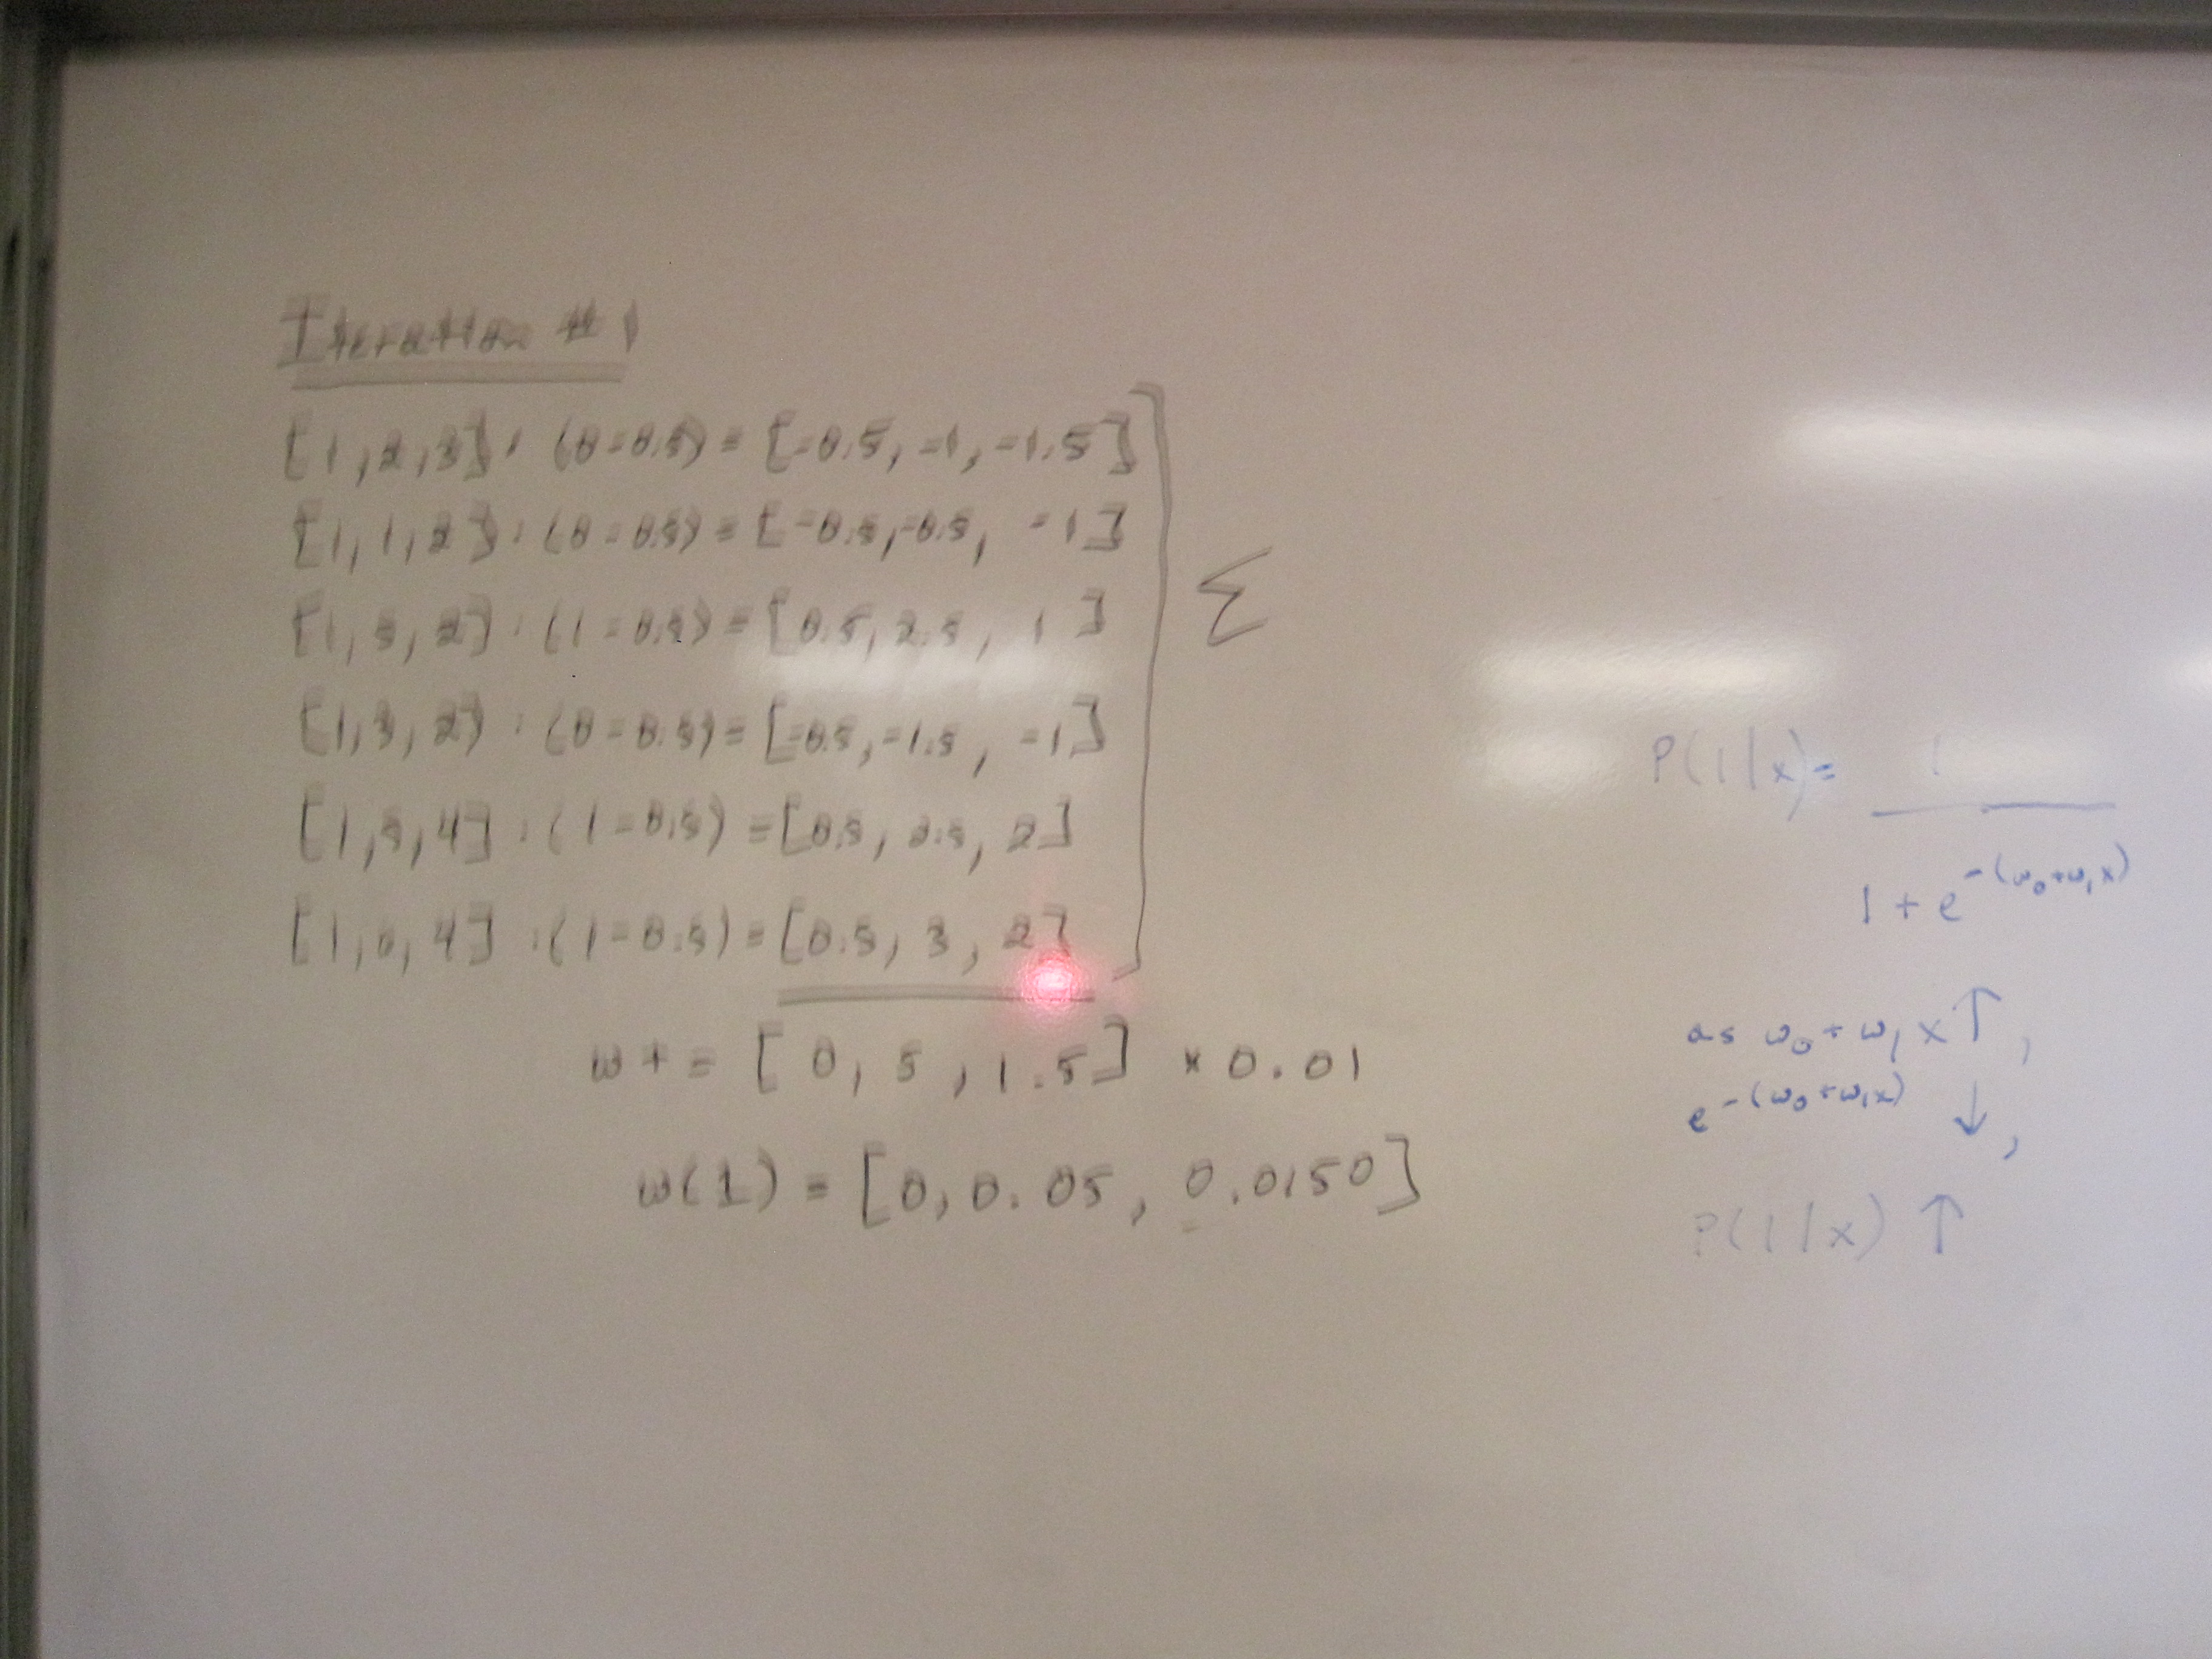 Iteration #1
[1,2,3] · (0-0.5) = [-0.5, -1, -1.5]
[1,1,2] · (0-0.5) = [-0.5,-0.5, -1]
[1,5,2] · (1-0.5) = [0.5, 2.5, 1]
[1,3,2] · (0-0.5) = [-0.5,-1.5, -1]
[1,5,4] · (1-0.5) = [0.5, 2.5, 2]
[1,6,4] · (1-0.5) = [0.5, 3, 2]
Σ
w += [0, 5, 1.5] × 0.01
w(1) = [0, 0.05, 0.0150]
P(1|x) = 1
1 + e^-(w₀+w₁x)
as w₀ + w₁x ↑,
e^-(w₀+w₁x) ↓,
P(1|x) ↑